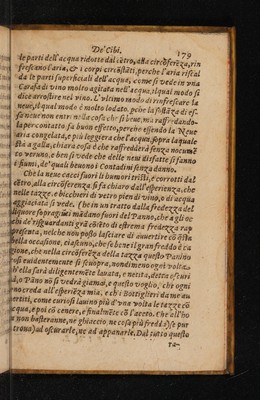 De' Cibi. 179
le parti dell'acqua ridotte dal cẽtro, alla circõferẽza, rin
frescano l'aria, & i corpi circõstãti, perche l'aria riscal
da le parti superficiali dell'acque, come si vede in vna
Carafa di vino molto agitata nell'acqua, il qual modo si
dice arrostire nel vino. L'vltimo modo di rinfrescare la
neue, il qual modo è molto lodato, pche la sostãza di es-
sa neue non entri nella cosa che si beue, ma raffreddando-
la per contatto fa buon effetto, perche essendo la Neue
aria congelata, è più leggiera che l'acqua, sopra la quale
stà a galla, chiara cosa è che raffredderà senza nocumẽ
to veruno, e ben si vede che delle neui disfatte si fanno
i fiumi, de' quali beuono i Contadini senza danno.
Che la neue cacci fuori li humori tristi, e corrotti dal
cẽtro, alla circõferenza si fa chiaro dall'esperienza, che
nelle tazze, e bicchieri di vetro pien di vino, o di acqua
agghiaciata si vede. (be in un tratto dalla fredezza del
liquore sopragiũti mãdano fuori del Panno, che a gli oc
chi de' risguardanti grã cõtẽto di estrema fredezza rap
presenta, nel che non posso lasciare di auuertire cõ q̃sta
bella occasione, ciascuno, che se bene il gran freddo è ca
gione, che nella circõferẽza della tazza questo Panino
così euidentemente si scuopra, nondimeno ogni volta
ch'ella sarà diligentemẽte lauata, e netita, detta oscuri
tà, o Pãno nõ si vedrà giamai, e questo voglio, che ogni
uno creda all'esperiẽza mia, e chi Bottiglieri da me au
uertiti, come curiosi lauino più d'vna volta le tazze cõ
acqua, e poi cõ cenere, e finalmẽte cõ l'aceto. Che all'ho
ra non basteranne, ne ghiaccio, ne cosa più fredda (se pur
troua) ad oscurarle, ne ad appannarle. Dal tutto questo
ra-